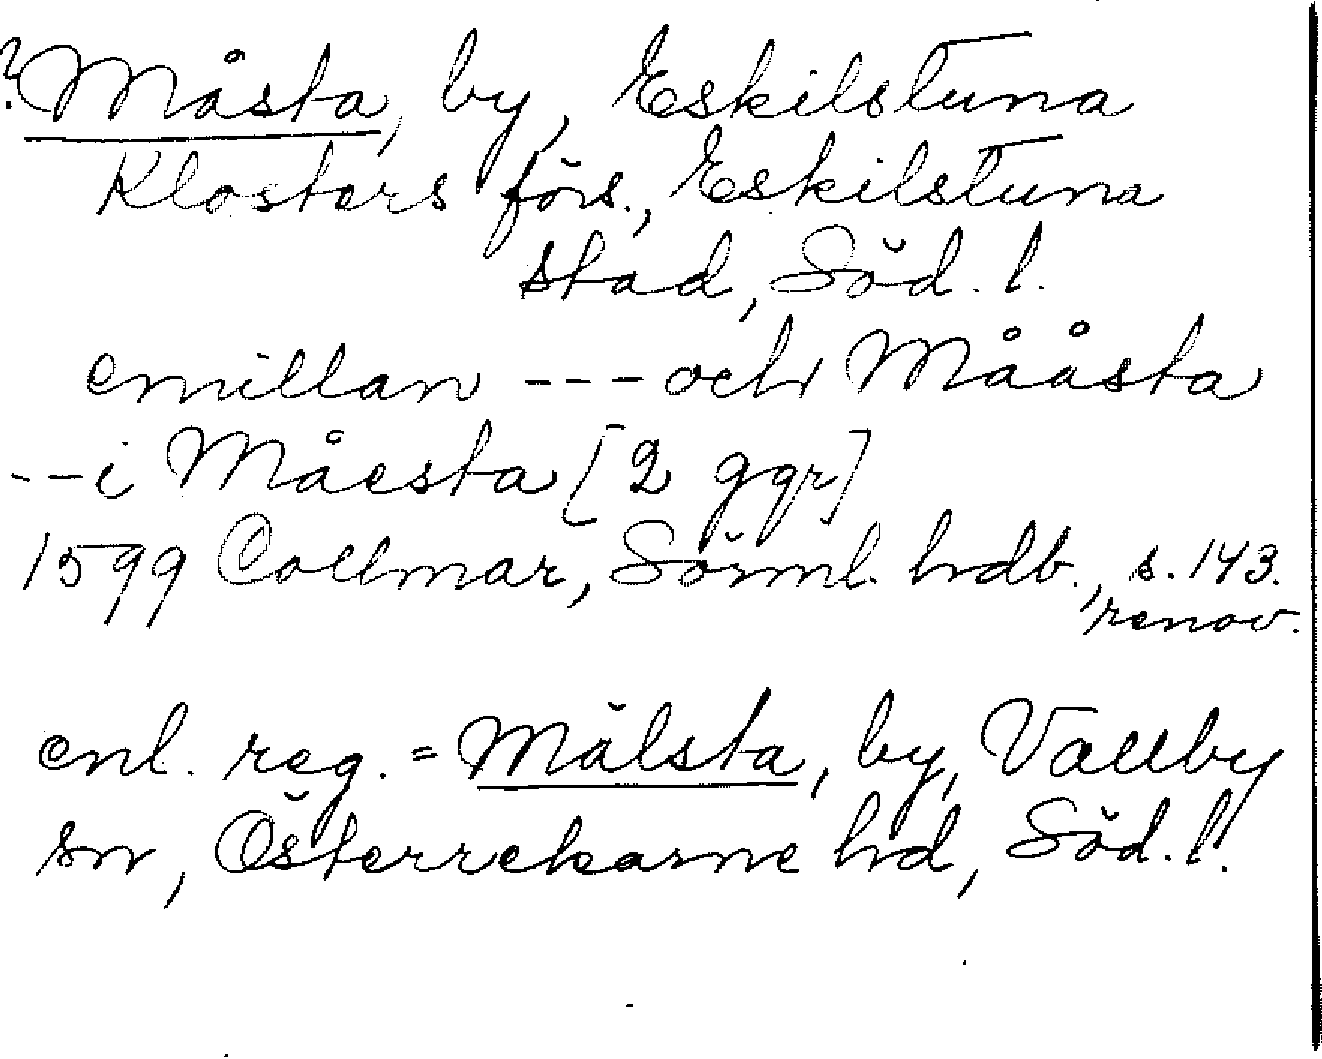 ? Måsta, by, Eskilstuna
Klosters förs., Eskilstuna
stad, Söd. l.
emillan --- och Mååsta
-- i Måesta [2 ggr]
1599 Collmar, Sörml. hdb., s. 143.
renov.
enl. reg. = Målsta, by, Vallby
sn, Österrekarne hd, Söd. l.